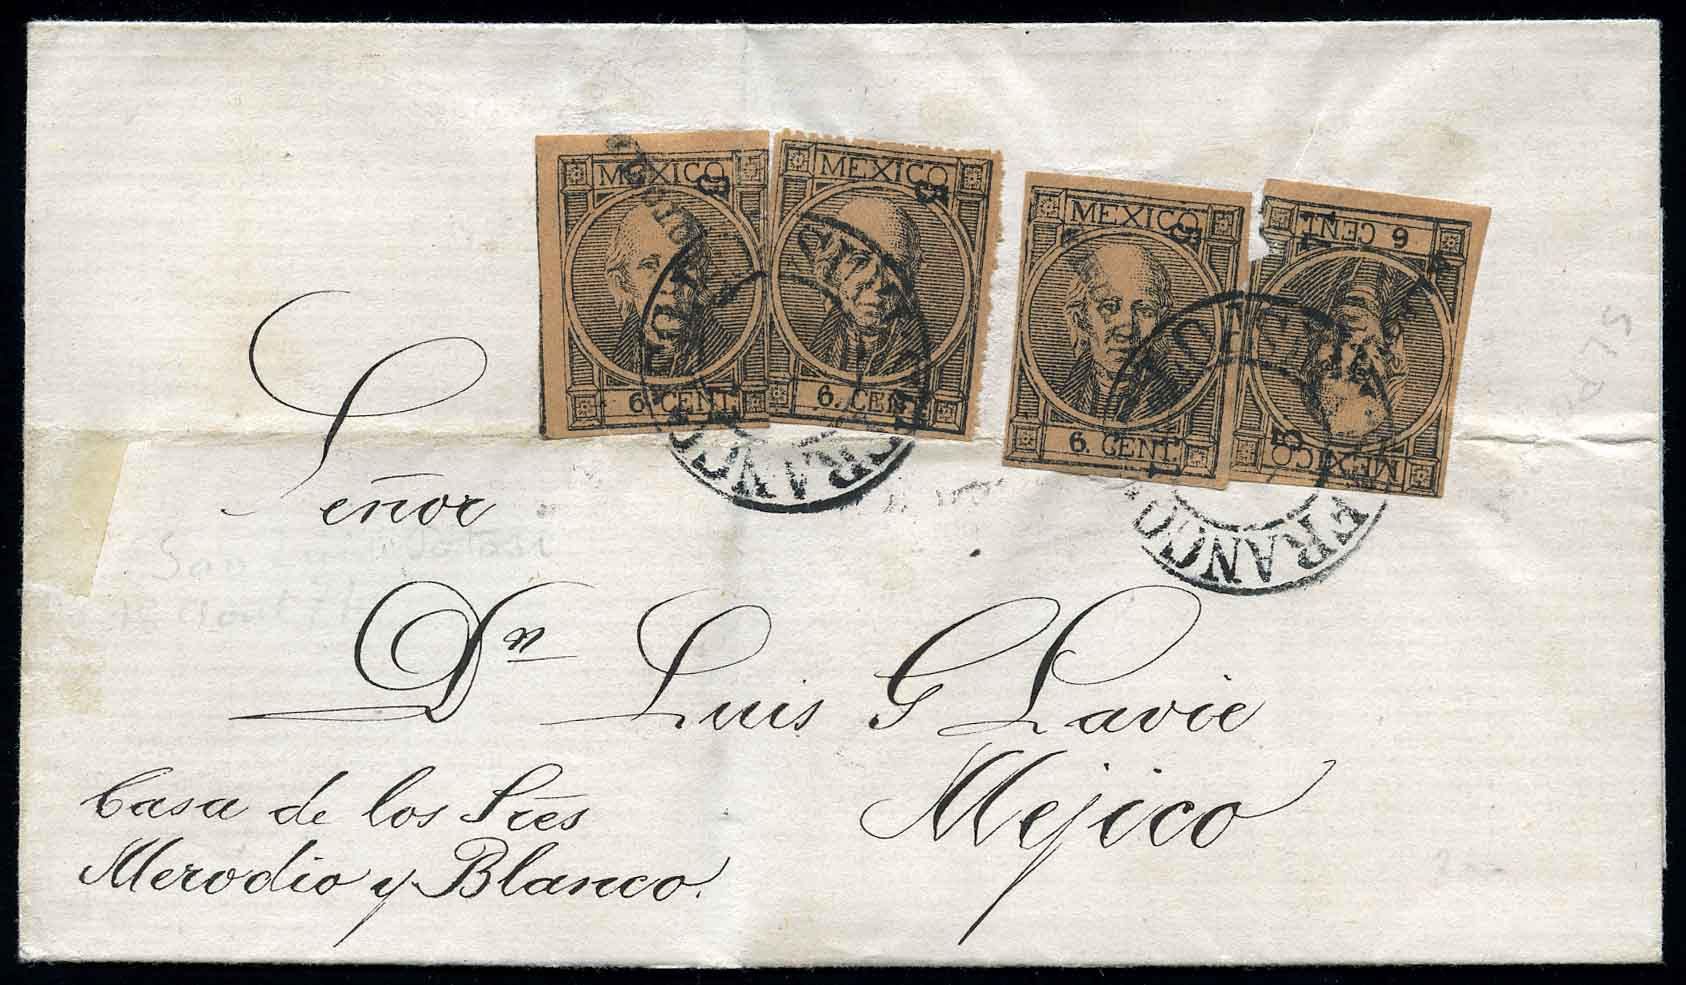 MEXICO MEXICO MEXICO 6 CENT
6. CENT. 6. CENT. 6. CENT. MEXICO
FRANCO FRANCO
Señor
Dn Luis G Lavie
Méjico
Casa de los Sres
Merodio y Blanco.
San Luis Potosi